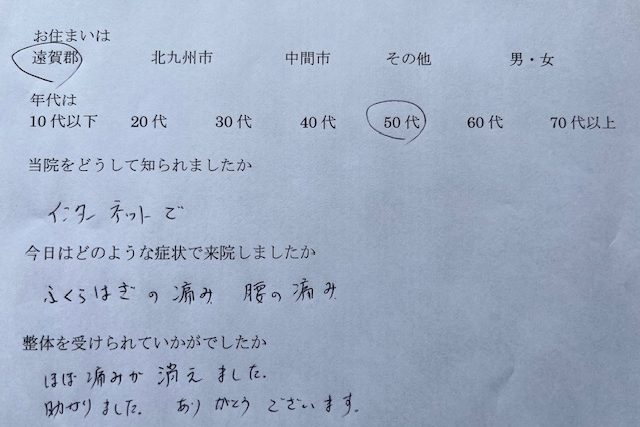 お住まいは
遠賀郡 北九州市 中間市 その他 男・女
年代は
10代以下 20代 30代 40代 50代 60代 70代以上
当院をどうして知られましたか
インターネットで
今日はどのような症状で来院しましたか
ふくらはぎの痛み 腰の痛み
整体を受けられていかがでしたか
ほぼ痛みが消えました。
助かりました。ありがとうございます。